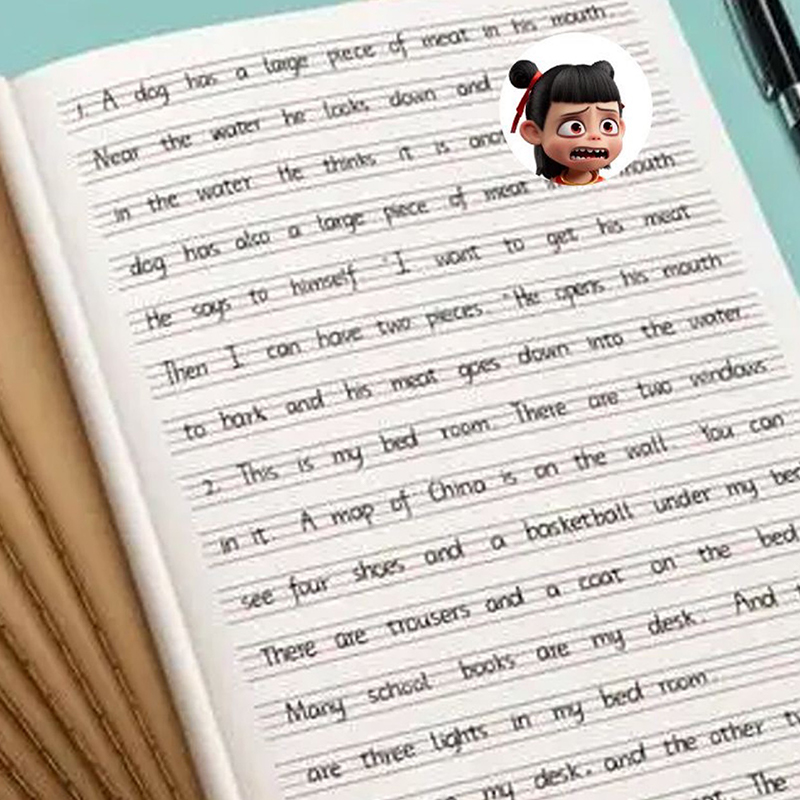 1. A dog has a large piece of meat in his mouth.
Near the water he looks down and
in the water. He thinks it is
dog has also a large piece of meat mouth
He says to himself "I want to get his meat
Then I can have two pieces. "He opens his mouth
to bark and his meat goes down into the water.
2. This is my bed room. There are two windows
in it. A map of China is on the wall. You can
see four shoes and a basketball under my
There are trousers and a coat on the bed.
Many school books are my desk. And
are three lights in my bed room.
my desk. and the other
The